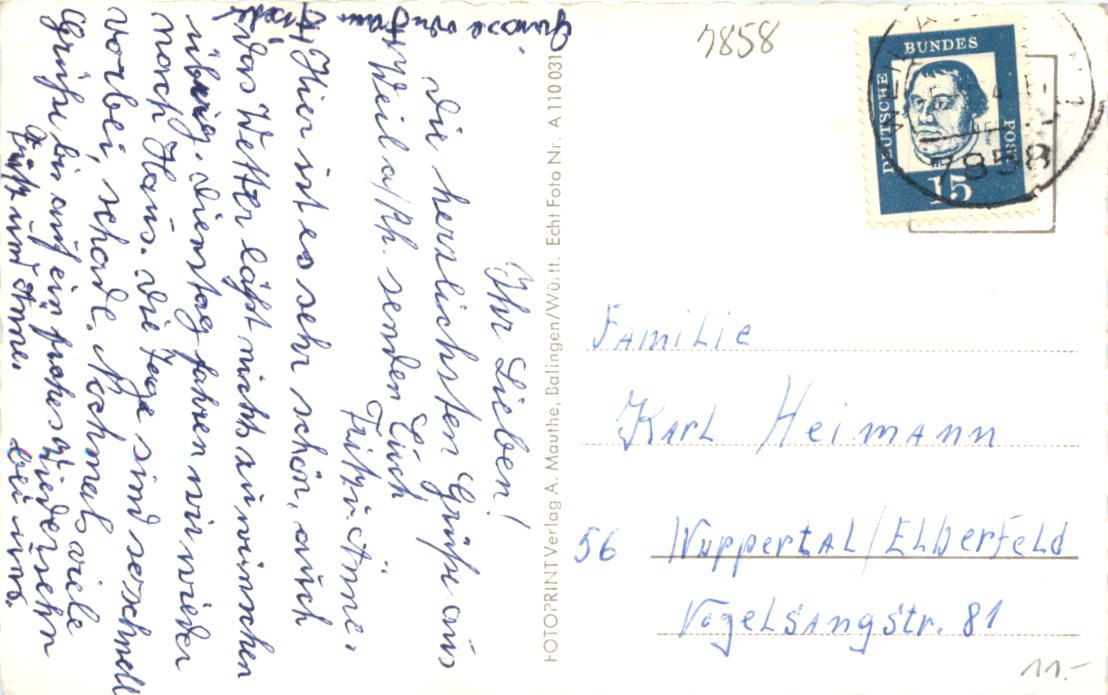 Ihr Lieben!
Die herzlichsten Grüße aus
Weil a/Rh. senden Euch
Fritz u. Änne.
Hier ist es sehr schön, auch
das Wetter läßt nichts zu wünschen
übrig. Dienstag fahren wir wieder
nach Haus. Die Tage sind so schnell
vorbei, schade. Nochmals viele
Grüße bis auf ein frohes Wiedersehn
bei uns.
Fritz und Änne.
Grüsse von
FOTOPRINT Verlag A. Mauthe, Balingen/Württ. Echt Foto Nr. A 110 031
7858
DEUTSCHE
BUNDES
POST
15
7858
Familie
Karl Heimann
56 Wuppertal/Elberfeld
Vogelsangstr. 81
11.-